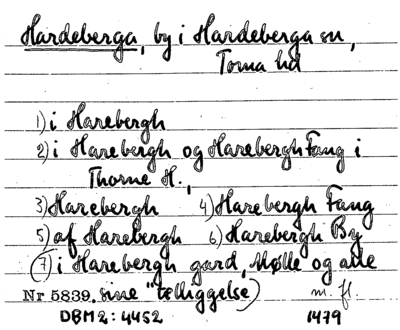 Hardeberga, by i Hardeberga sn,
Torna hd
1) i Harebergh
2) i Harebergh og Harebergh Fang i
Thorne H.,
3) Harebergh 4) Harebergh Fang
5) af Harebergh 6) Harebergh By
(7) i Harebergh gard, Mølle og alle
Nr 5839. sine "telliggelse)
m. fl.
DBM2: 4452 1479